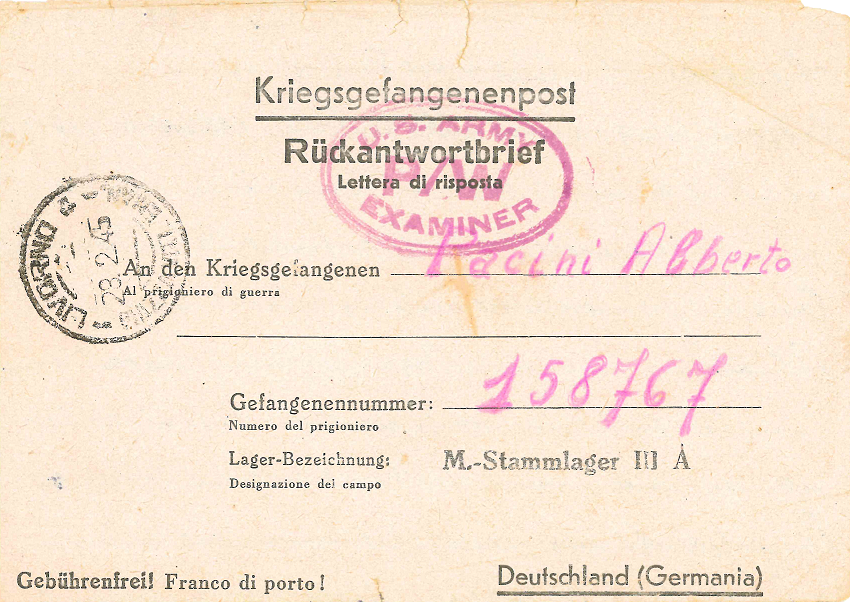 Kriegsgefangenenpost
U.S. ARMY
P/W
EXAMINER
Rückantwortbrief
Lettera di risposta
LIVORNO
28.2.45
An den Kriegsgefangenen Pacini Alberto
Al prigioniero di guerra
Gefangenennummer: 158767
Numero del prigioniero
Lager-Bezeichnung: M.-Stammlager III A
Designazione del campo
Gebührenfrei! Franco di porto!
Deutschland (Germania)